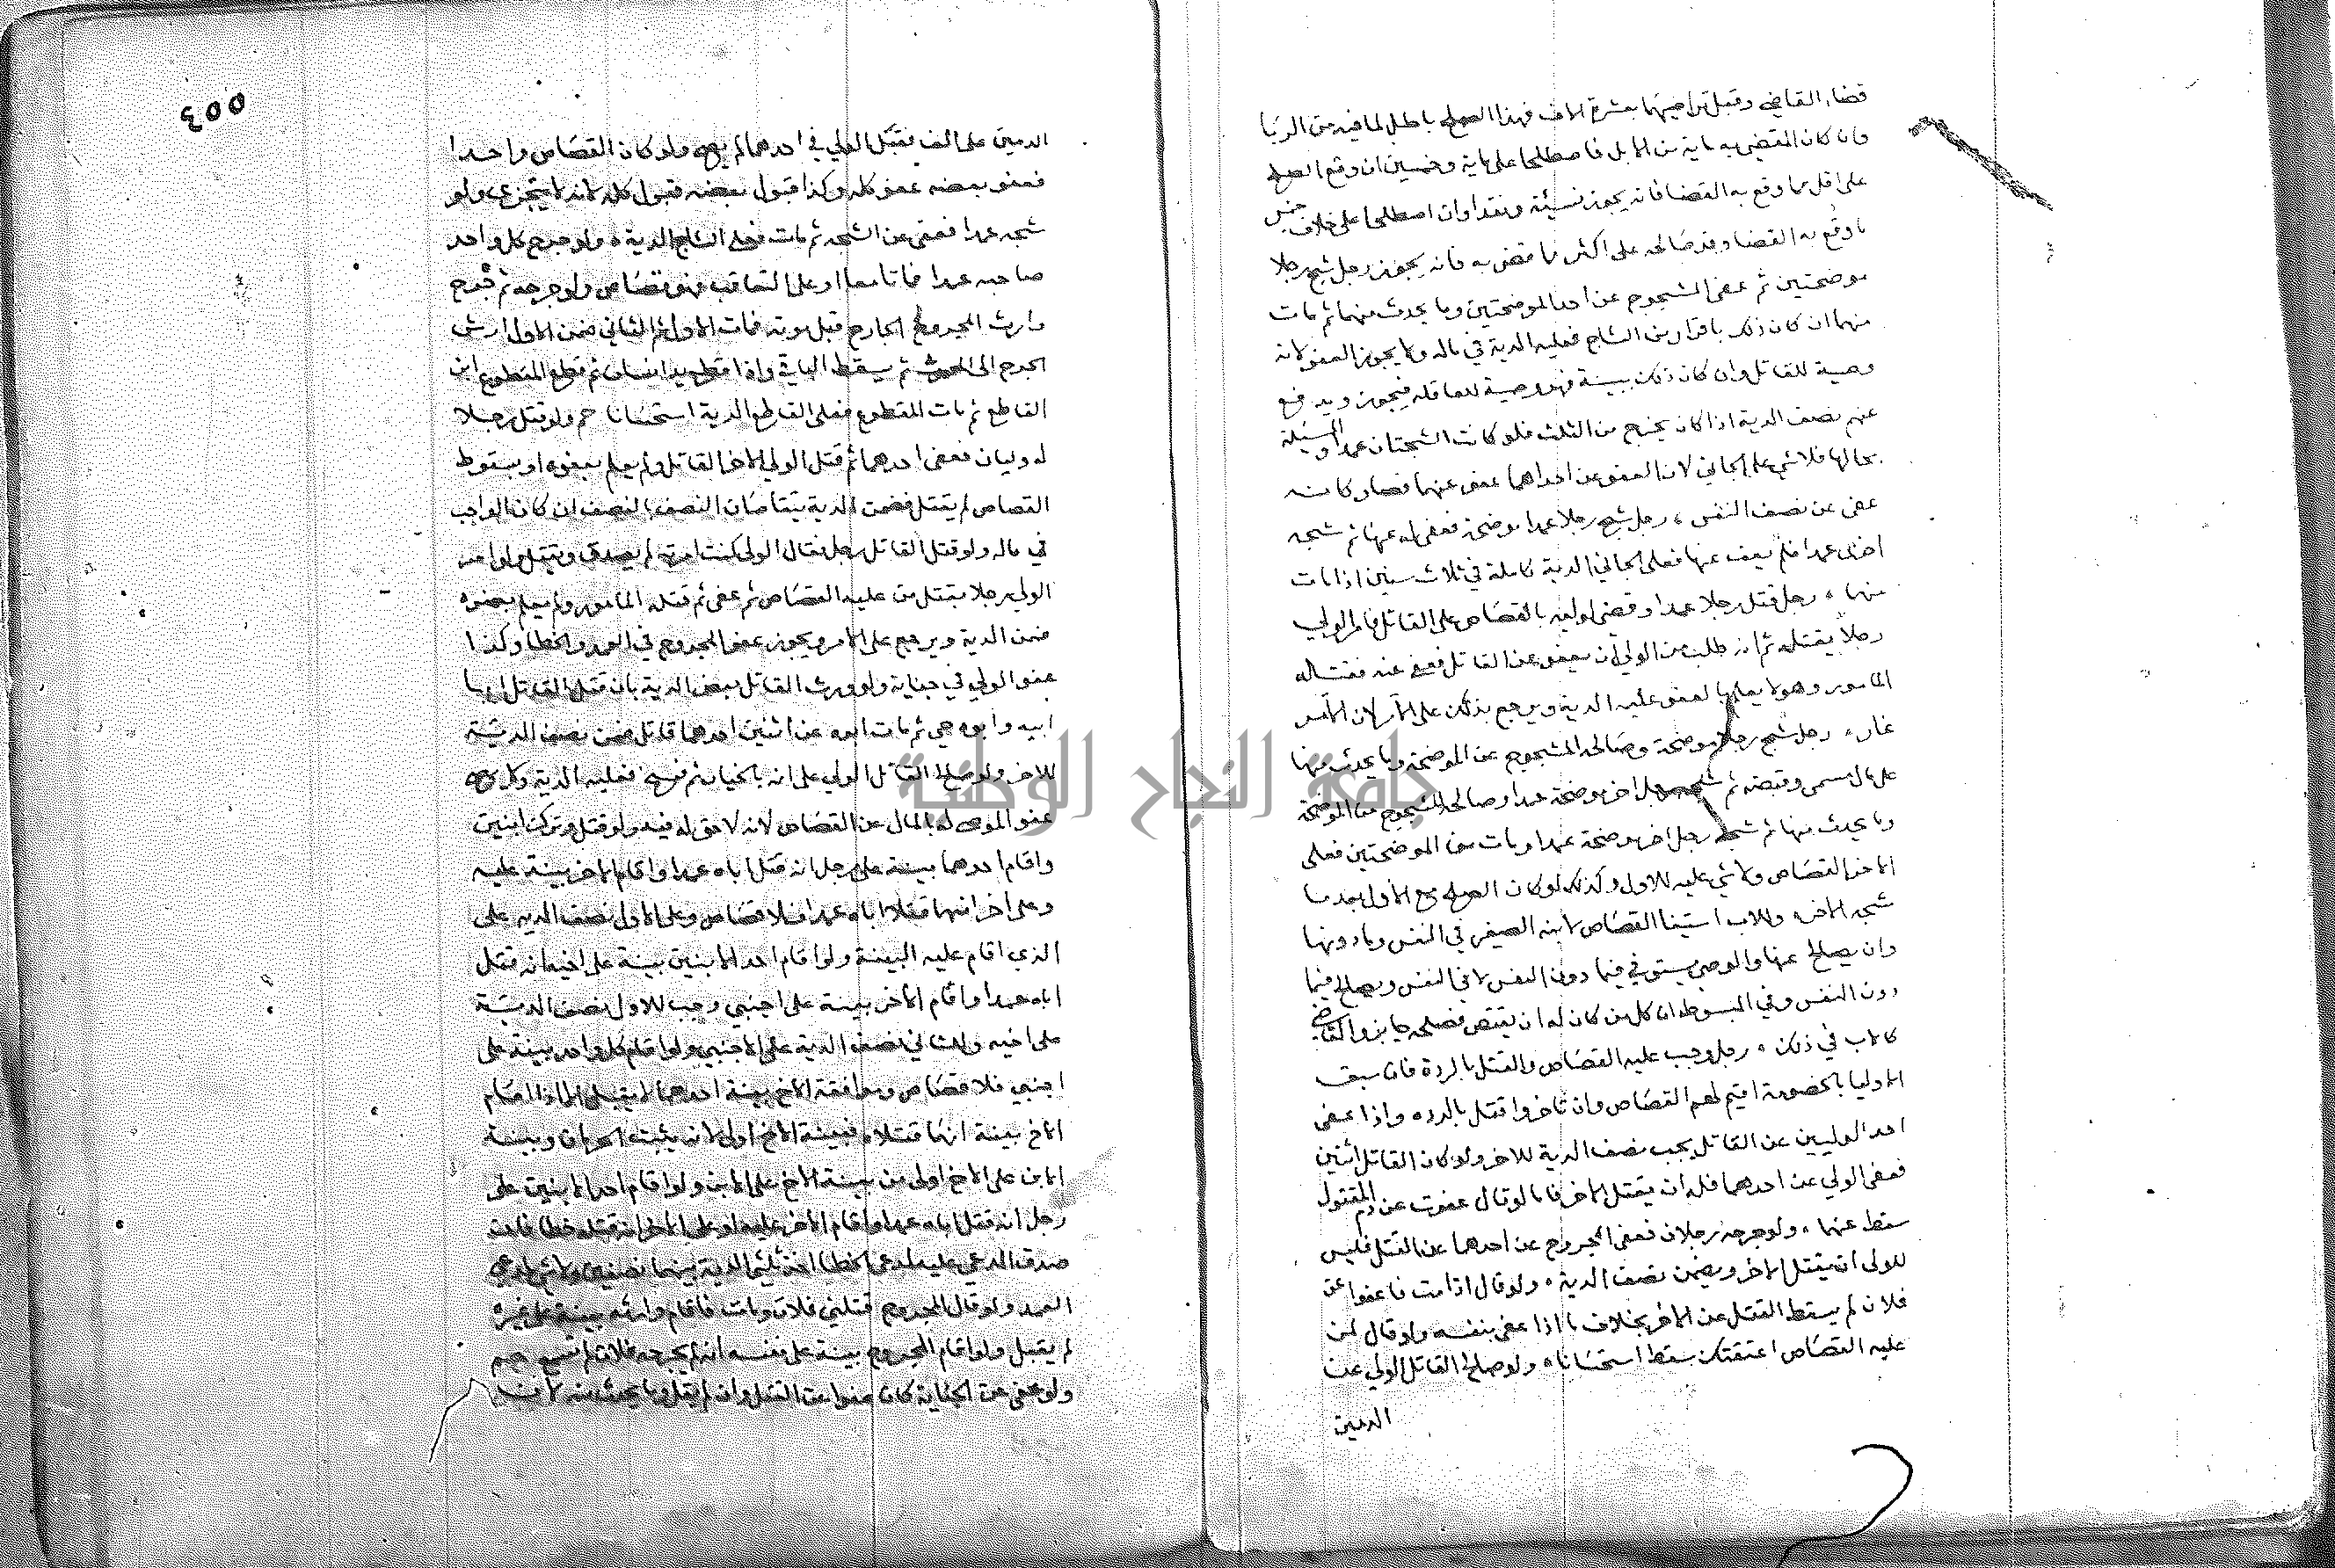 قضاء القاضي وقبل تراضيهما بعشرة الاف فهذا الصلح باطل لما فيه من الربا
وان كان المقضي به ماية من الابل فاصطلحا على ماية وخمسين ان وقع الصلح
على اقل مما وقع به القضا فانه يجوز نسيئة ونقدا وان اصطلحا على خلاف جنس
ما وقع به القضا وقد صالحه على اكثر مما قضى به فانه يجوز رجل شج رجلا
موضحتين ثم عفى المشجوج عن احد الموضحتين وما يحدث منهما ثم مات
منهما ان كان ذلك باقرار من الشاج فعليه الدية في ماله ولا يجوز العفو لانه
وصية للقاتل وان كان ذلك ببينة فهو وصية للعاقلة فيجوز ويدفع
عنهم نصف الدية اذا كان يخرج من الثلث فلو كانت الشجتان عمدا والمسئلة
بحالها فلا شي على الجاني لان العفو عن احداهما عفو عنهما فصار كانه
عفى عن نصف النفس، رجل شج رجلا عمدا موضحة فعفى له عنها ثم شجه
اخرى عمدا فلم يعف عنها فعلى الجاني الدية كاملة في ثلاث سنين اذا مات
منها، رجل قتل رجلا عمدا وقضى لوليه بالقصاص على القاتل فامر الولي
رجلا بقتله ثم انه طلب من الولي ان يعفو عن القاتل فعفى عنه فقتله
المامور وهو لا يعلم بالعفو عليه الدية ويرجع بذلك على الآمر لان الآمر
غار، رجل شج رجلا موضحة وصالحه المشجوج عن الموضحة وما يحدث منها
على مال مسمى وقبضه ثم شجه رجل اخر موضحة عمدا وصالحه المشجوج من الموضحة
وما يحدث منها ثم شجه رجل اخر موضحة عمدا ومات من الموضحتين فعلى
الاخر القصاص ولا شي عليه للاول وكذلك لو كان الصلح مع الاول بعد ما
شجه الاخر، وللاب استيفا القصاص لابنه الصغير في النفس وما دونها
وان يصالح عنها والوصي يستوفي فيما دون النفس لا في النفس ويصالح فيما
دون النفس وفي المبسوط ان كل من كان له ان يقتص فصلحه جايز والقاضي
كالاب في ذلك، رجل وجب عليه القصاص والقتل بالردة فان سبق
الاوليا بالخصومة اقيم لهم القصاص وان تاخروا قتل بالردة، واذا عفى
احد الوليين عن القاتل يجب نصف الدية للاخر ولو كان القاتل اثنين
فعفى الولي عن احدهما فله ان يقتل الاخر فاما لو قال عفوت عن دم المقتول
سقط عنهما، ولو جرحه رجلان فعفى المجروح عن احدهما عن القتل فليس
للولي ان يقتل الاخر ويضمن نصف الدية، ولو قال اذا مت فاعفوا عن
فلان لم يسقط القتل عن الاخر بخلاف ما اذا عفى بنفسه ولو قال لمن
عليه القصاص اعتقتك سقط استحسانا، ولو صالح القاتل الولي عن
الدمين
٤٥٥
الدمين على الف فقبل الولي في احدهما لم يصح ولو كان القصاص واحدا
فعفو بعضه عفو كله وكذا قبول بعضه قبول كله لانه لا يتجزى ولو
شجه عمدا فعفى عن الشجه ثم مات فعلى الشاج الدية، ولو جرح كل واحد
صاحبه عمدا فماتا معا او على التعاقب فهو قصاص ولو جرحه ثم جرح
وارث المجروح الجارح قبل موته فمات الاول ثم الثاني ضمن الاول ارش
الجرح الى ثم يسقط الباقي واذا قطع يد انسان ثم قطع المقطوع ابن
القاطع ثم مات المقطوع فعلى القاطع الدية استحسانا ولو قتل رجلا
له وليان فعفى احدهما ثم قتل الولي الاخر القاتل ولم يعلم بعفوه او بسقوط
القصاص لم يقتل فضمن الدية يتقاصان النصف بالنصف ان كان الواجب
في ماله ولو قتل القاتل رجل فقال الولي كنت امرته لم يصدق ويقتل ولو امر
الولي رجلا بقتل من عليه القصاص ثم عفى ثم قتله المامور ولم يعلم بعفوه
ضمن الدية ويرجع على الامر ويجوز عفو المجروح في العمد والخطا وكذا
عفو الولي في جناية ولو ورث القاتل بعض الدية بان قتل القاتل
ابيه وابوه حي ثم مات ابوه عن اثنين احدهما قاتل ضمن نصف الدية
للاخر ولو صالح القاتل الولي على انه بالخيار ثم فسخ فعليه الدية
عفو الموصى له بالمال عن القصاص لانه لا حق له فيه ولو قتل وترك ابنين
واقام احدهما بينة على رجل انه قتل اباه عمدا واقام الاخر بينة عليه
وعلى اخر انهما قتلا اباه عمدا فلا قصاص وعلى الاول نصف الدية على
الذي اقام عليه البينة ولو اقام احد الابنين بينة على اخيه انه قتل
اباه عمدا واقام الاخر بينة على اجنبي وجب للاول نصف الدية
على اخيه وللثاني نصف الدية على الاجنبي ولو اقام كل واحد بينة على
اجنبي فلا قصاص وموافقة الاخ بينة احدهما لم يقبل الا اذا اقام
الاخ بينة انهما قتلاه فبينة الاخ اولى لانه يثبت الحرمان وبينة
الابن على الاخ اولى من بينة الاخ على الابن ولو اقام احد الابنين على
رجل انه قتل اباه عمدا واقام الاخر عليه او على اخر انه قتله خطا فان
صدق المدعى عليه لمدعي الخطا اخذ ثلثي الدية بينهما نصفين ولا شي لمدعي
العمد ولو قال المجروح قتلني فلان ومات فاقام وارثه بينة على غيره
لم يقبل ولو اقام المجروح بينة على نفسه انه لم يجرحه فلان لم تسمع
ولو عفى عن الجناية كان عفوا عن القتل وان لم يقل وما يحدث منه لانه
جامعة النجاح الوطنية